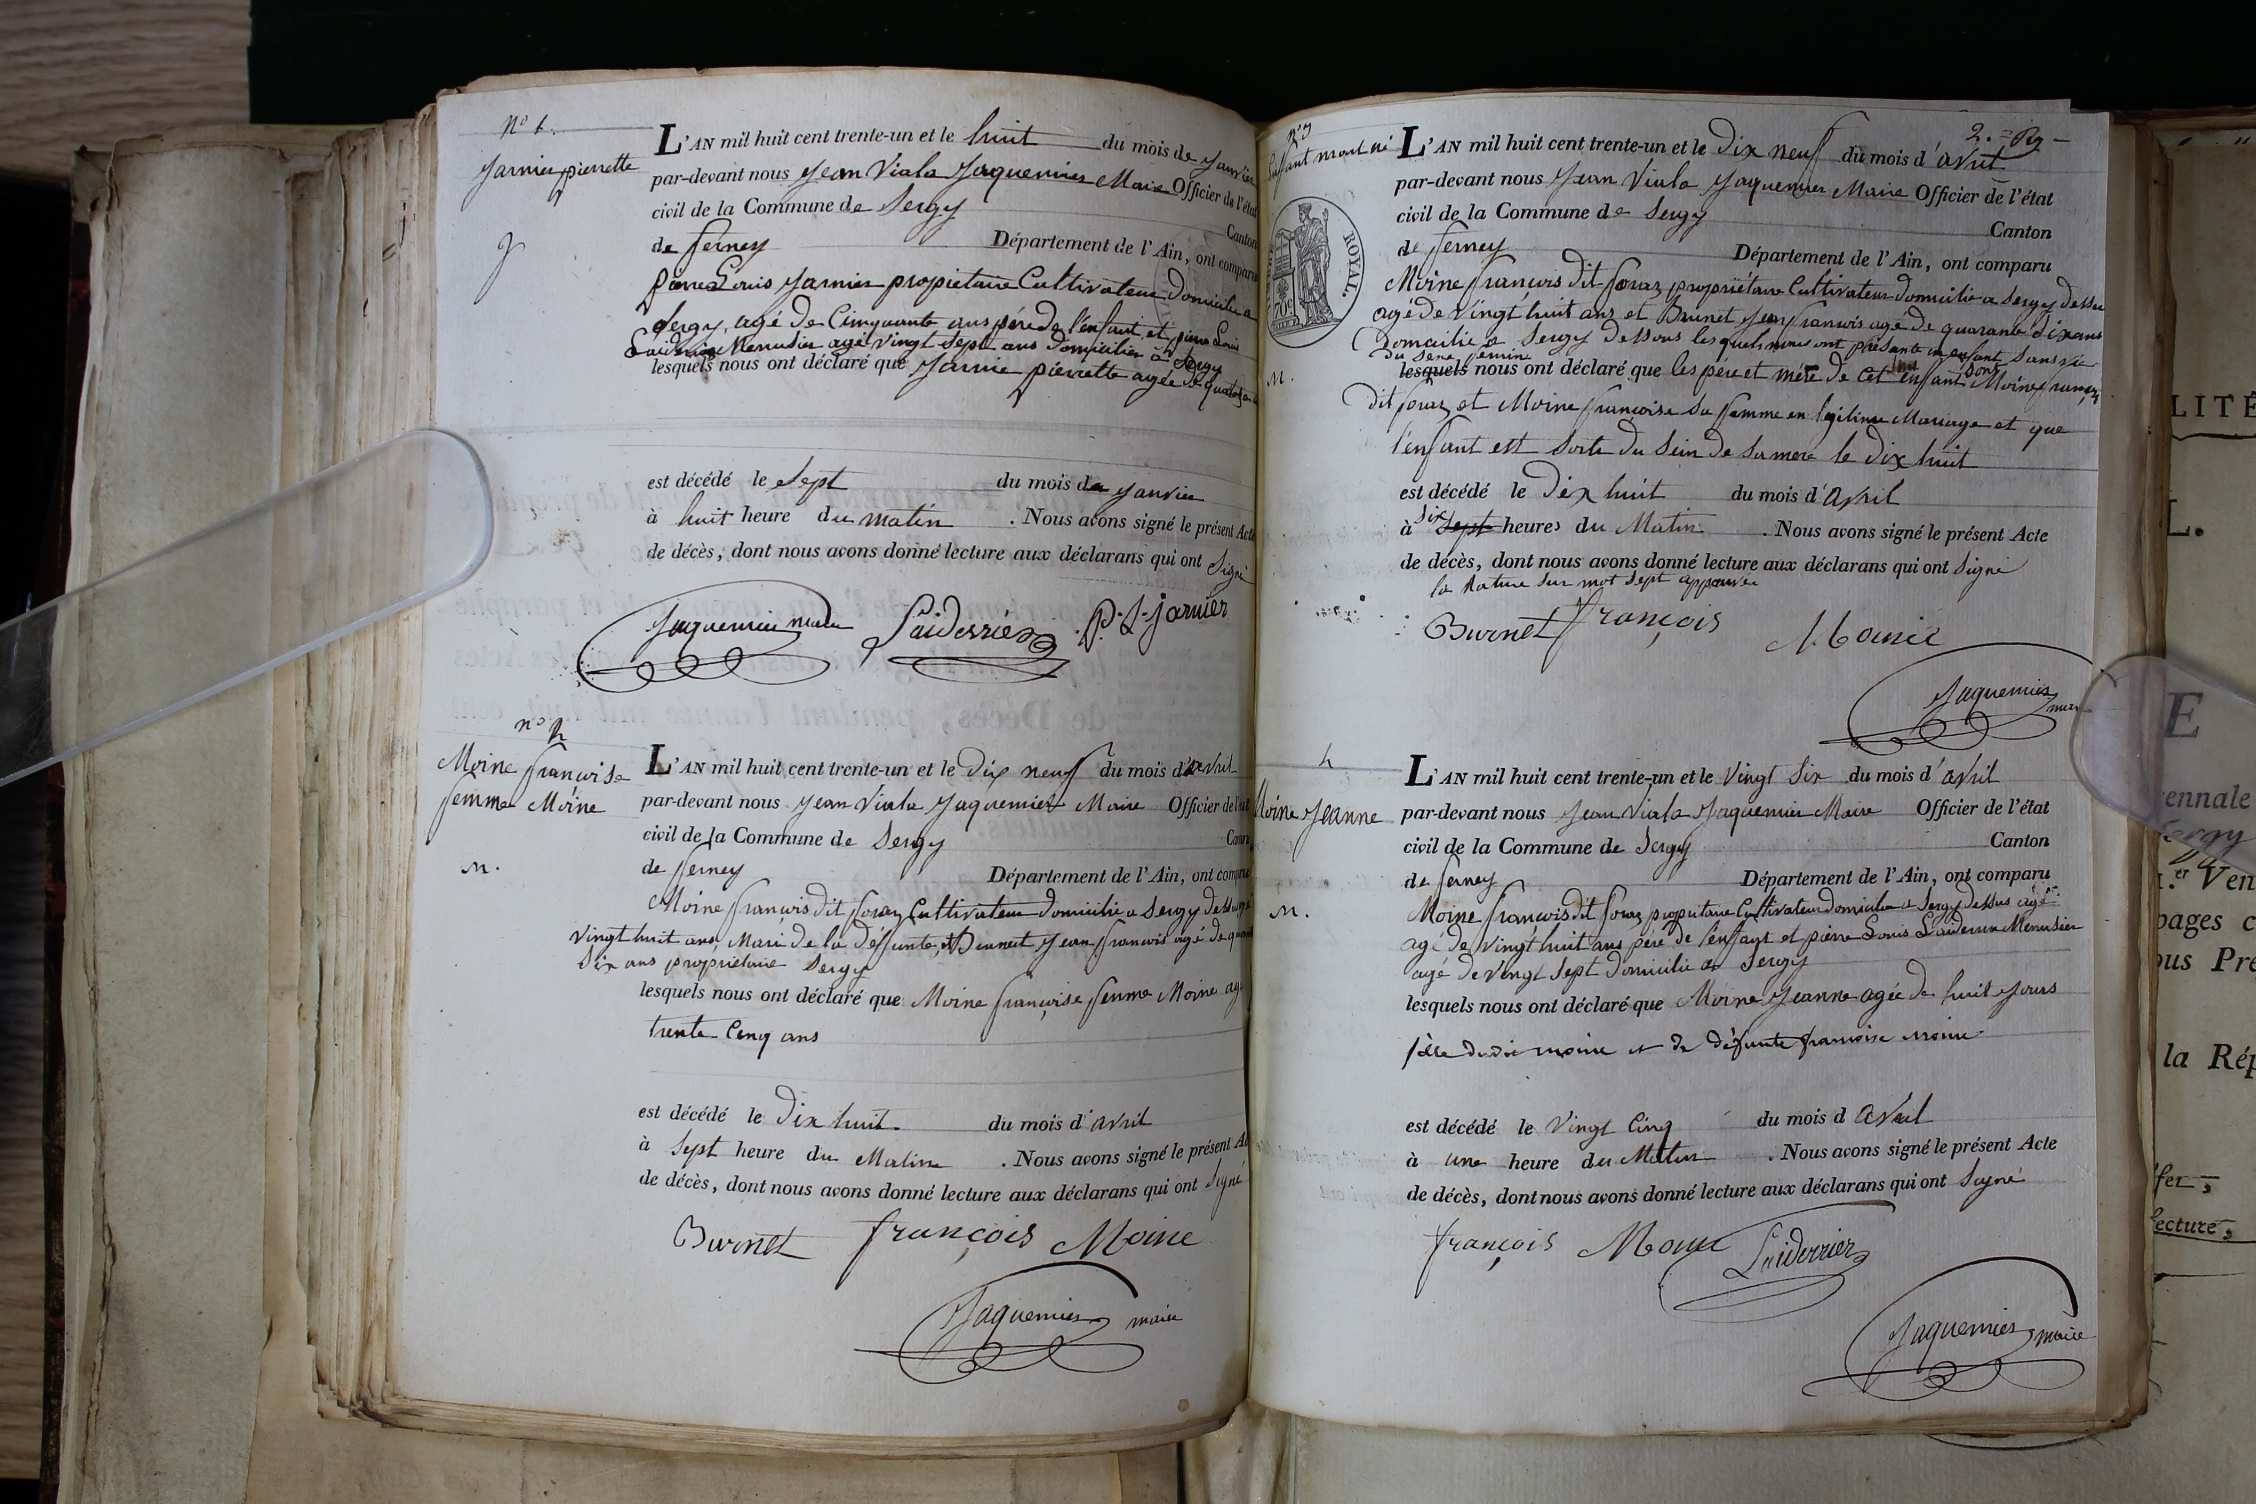 n° 1.
Jarnier pierrette
L'AN mil huit cent trente-un et le huit du mois de Janvier
par-devant nous Jean Viala Jaquemier Maire Officier de l'état
civil de la Commune de Sergy
Canton
de ferney Département de l'Ain, ont comparu
pierre Louis Jarnier propietaire Cultivateur Domicilie a
Sergy, agé de Cinquante ans pére de l'énfant et pierre Louis
Laiderrier Menusier agé vingt sept ans domicilier à Sergy
lesquels nous ont déclaré que Jarnie pierrette agée de
est décédé le Sept du mois de Janvier
à huit heure du matin . Nous avons signé le présent Acte
de décès, dont nous avons donné lecture aux déclarans qui ont Signé
Jaquemier maire Laiderrier P. L. jarnier
n° 2
Moine françoise
femme Moine
M.
L'AN mil huit cent trente-un et le Dix neuf du mois d'avril
par-devant nous Jean Viala Jaquemier Maire Officier de l'état
civil de la Commune de Sergy
Canton
de ferney Département de l'Ain, ont comparu
Moine françois dit fouraz Cultivateur domicilie a Sergy dessus agé
Vingt huit ans Mari de la défunte, et Brunet Jean françois agé de quarante
Dix ans propriétaire Sergy
lesquels nous ont déclaré que Moine françoise femme Moine agé
trente Cinq ans
est décédé le Dix huit du mois d'avril
à Sept heure du Matin . Nous avons signé le présent Acte
de décès, dont nous avons donné lecture aux déclarans qui ont Signé
Burnet françois Moine
Jaquemier maire
2.
n° 3
Enfant mort né
ROYAL.
70c
M.
L'AN mil huit cent trente-un et le Dix neuf du mois d'avril
par-devant nous Jean Viala Jaquemier Maire Officier de l'état
civil de la Commune de Sergy
Canton
de ferney Département de l'Ain, ont comparu
Moine françois dit fouraz propriétaire Cultivateur domicilié a Sergy dessu
agé de Vingt huit ans et Brunet Jean francois agé de quarante dix ans
Domicilié a Sergy Dessous lesquels nous ont présente un enfant sans vie
du sexe féminin
lesquels nous ont déclaré que les pére et mére de Cet enfant sont Moine françois
dit fouraz et Moine françoise sa femme en légitime Mariage et que
l'énfant est Sorti du Sein de sa mere le dix huit
est décédé le Dix huit du mois d'Avril
à six sept heures du Matin . Nous avons signé le présent Acte
de décès, dont nous avons donné lecture aux déclarans qui ont Signé
la Rature sur mot Sept approuvée
Burnet françois Moine
Jaquemier maire
4
Moine Jeanne
M.
L'AN mil huit cent trente-un et le Vingt Six du mois d'avril
par-devant nous Jean Viala Jaquemier Maire Officier de l'état
civil de la Commune de Sergy
Canton
de ferney Département de l'Ain, ont comparu
Moine francois dit fouraz propiétaire Cultivateur domicilie a Sergy dessus agé
agé de Vingt huit ans pére de l'énfant et pierre Louis Laiderrier Menusier
agé de Vingt Sept Domicilié a Sergy
lesquels nous ont déclaré que Moine Jeanne agée de huit Jours
fille dudit moine et de défunte françoise moine
est décédé le Vingt Cinq du mois d Avril
à une heure du Matin . Nous avons signé le présent Acte
de décès, dont nous avons donné lecture aux déclarans qui ont Signé
françois Moine Laiderrier
Jaquemier maire
LITÉ
L.
E
ennale
Sergy
Ven
pages c
ous Pré
la Rép
fer,
lecture,